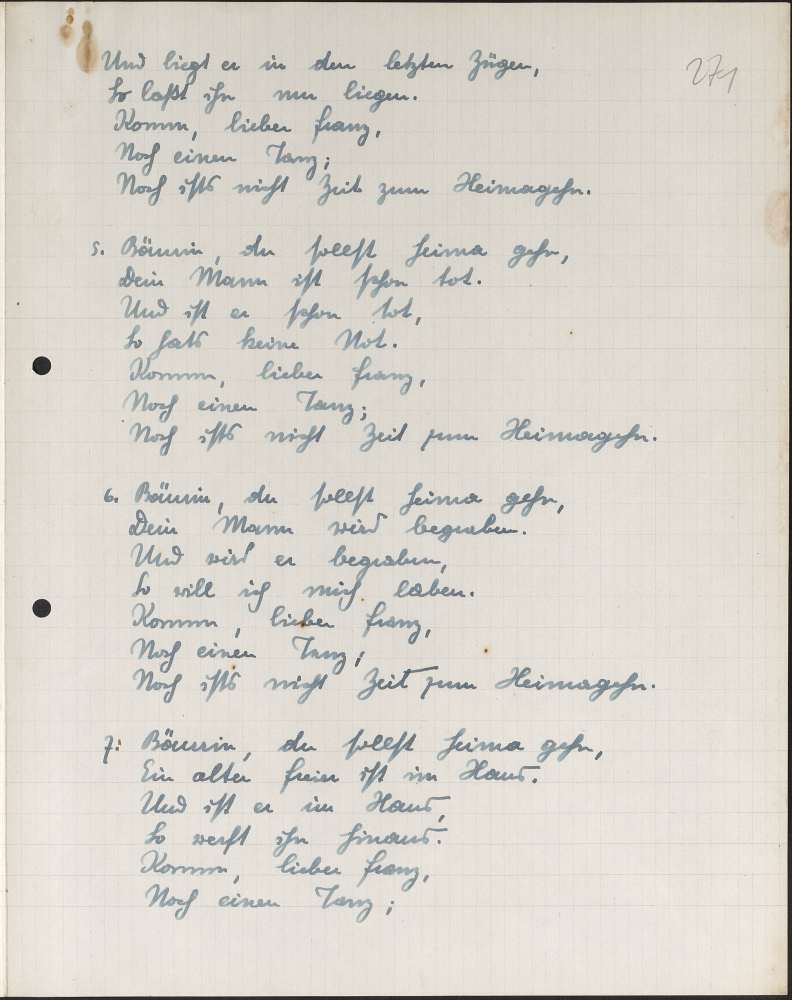 271
Und liegt er in den letzten Zügen,
So laßt ihn nur liegen.
Komm, lieber Franz,
Noch einen Tanz;
Noch ists nicht Zeit zum Heimagehn.
5. Bäurin, du sollst heima gehn,
Dein Mann ist schon tot.
Und ist er schon tot,
So hats keine Not.
Komm, lieber Franz,
Noch einen Tanz;
Noch ists nicht Zeit zum Heimagehn.
6. Bäurin, du sollst heima gehn,
Dein Mann wird begraben.
Und wird er begraben,
So will ich mich laben.
Komm, lieber Franz,
Noch einen Tanz;
Noch ists nicht Zeit zum Heimagehn.
7. Bäurin, du sollst heima gehn,
Ein alter Freier ist im Haus.
Und ist er im Haus,
So werft ihn hinaus.
Komm, lieber Franz,
Noch einen Tanz;